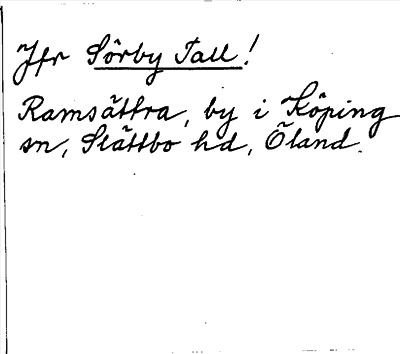 Jfr Sörby Tall!
Ramsättra, by i Köping
sn, Slättbo hd, Öland.